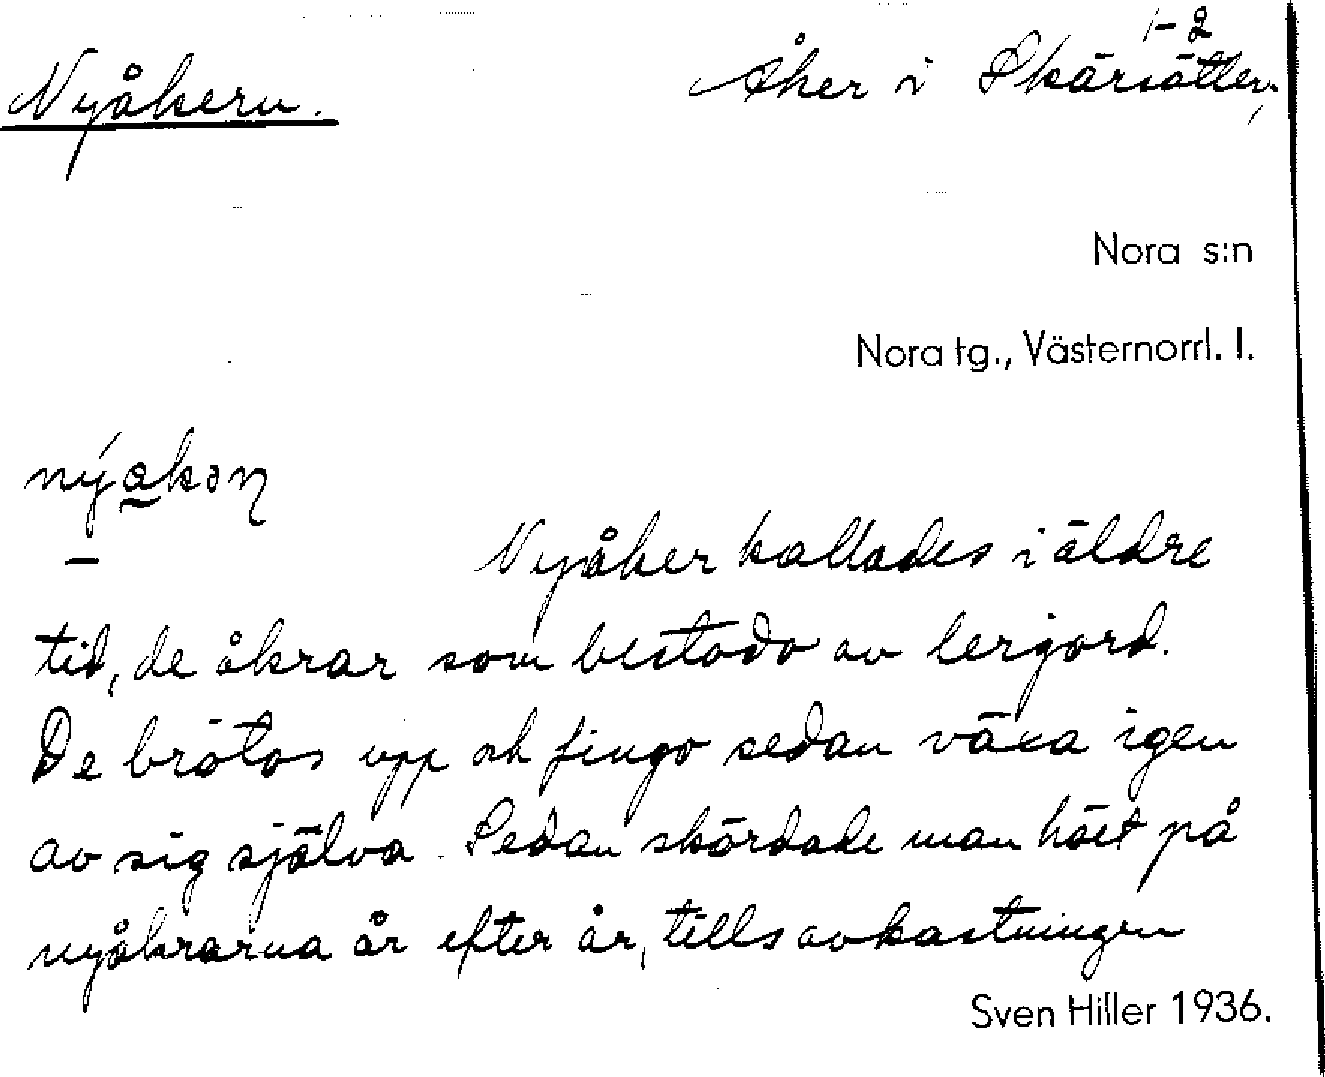 1-2
Nyåkern.
Åker i Skärsätter,
Nora s:n
Nora tg., Västernorrl. l.
nýakən
Nyåker kallades i äldre
tid, de åkrar som bestodo av lerjord.
De brötos upp och fingo sedan växa igen
av sig själva. Sedan skördade man höet på
nyåkrarna år efter år, tills avkastningen
Sven Hiller 1936.